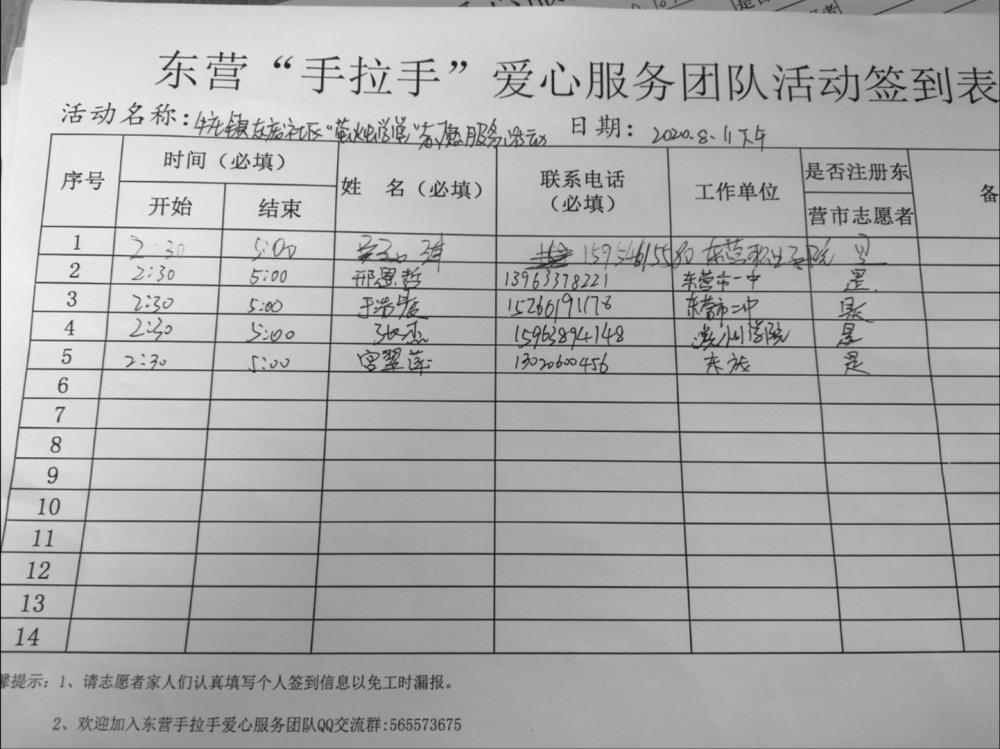 东营“手拉手”爱心服务团队活动签到表
活动名称：牛庄镇东店社区“萤火虫学堂”志愿服务活动 日期：2020.8.11下午
序号 时间（必填） 姓 名（必填） 联系电话（必填） 工作单位 是否注册东营市志愿者 备
开始 结束
1 2:30 5:00 15954615580 东营职业学院 是
2 2:30 5:00 邢恩哲 13963378221 东营市一中 是
3 2:30 5:00 15266191178 东营市二中 是
4 2:30 5:00 张杰 15963894148 滨州学院 是
5 2:30 5:00 宫翠莲 13020600456 是
6
7
8
9
10
11
12
13
14
馨提示：1、请志愿者家人们认真填写个人签到信息以免工时漏报。
2、欢迎加入东营手拉手爱心服务团队QQ交流群：565573675